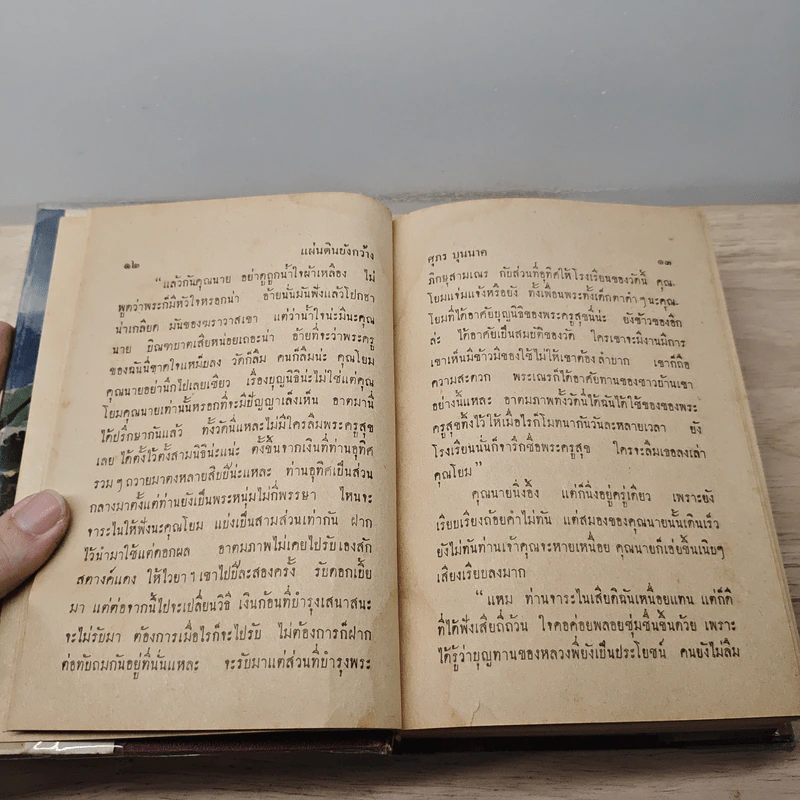 ๑๒
แผ่นดินยังกว้าง
“แล้วกันคุณนาย อย่าดูถูกน้ำใจผ้าเหลือง ไม่
พูดว่าพระก็มีหัวใจหรอกน่า อ้ายนั่นมันฟังแล้วโปกฮา
น่าเกลียด มันของฆราวาสเขา แต่ว่าน้ำใจน่ะมีนะคุณ
นาย บิณฑบาตเสียหน่อยเถอะน่า อ้ายที่จะว่าพระครู
ของฉันนี่ขาดใจแหม็บลง วัดก็ลืม คนก็ลืมน่ะ คุณโยม
คุณนายอย่านึกไปเลยเชียว เรื่องบุญนิธิน่ะไม่ใช่แต่คุณ
โยมคุณนายเท่านั้นหรอกที่จะมีปัญญาเล็งเห็น อาตมานี่
ได้ปรึกษากันแล้ว ทั้งวัดนี่แหละไม่มีใครลืมพระครูสุข
เลย ได้ตั้งไว้ตั้งสามนิธิน่ะแน่ะ ตั้งขึ้นจากเงินที่ท่านอุทิศ
รวม ๆ ถวายมาตงหลายสิบปีน่ะแหละ ท่านอุทิศเป็นส่วน
กลางมาตั้งแต่ท่านยังเป็นพระหนุ่มไม่กี่พรรษา ไหนจะ
จาระไนให้ฟังนะคุณโยม แบ่งเป็นสามส่วนเท่ากัน ฝาก
ไว้นำมาใช้แต่ดอกผล อาตมภาพไม่เคยไปรับเองสัก
สตางค์แดง ให้ไวยาฯ เขาไปปีละสองครั้ง รับดอกเบี้ย
มา แต่ต่อจากนี้ไปจะเปลี่ยนวิธี เงินก้อนที่บำรุงเสนาสนะ
จะไม่รับมา ต้องการเมื่อไรก็จะไปรับ ไม่ต้องการก็ฝาก
ต่อทับถมกันอยู่ที่นั่นแหละ จะรับมาแต่ส่วนที่บำรุงพระ
ศุภร บุนนาค
๑๓
ภิกษุสามเณร กับส่วนที่อุทิศให้โรงเรียนของวัดนี้ คุณ
โยมแจ่มแจ้งหรือยัง ทั้งเพื่อนพระทั้งเด็กตาดำ ๆ นะคุณ
โยมที่ได้อาศัยบุญนิธิของพระครูสุขนี่น่ะ ยังข้าวของอีก
ล่ะ ได้อาศัยเป็นสมบัติของวัด ใครเขาจะมีงานมีการ
เขาเห็นมีข้าวมีของใช้ไม่ให้เขาต้องลำบาก เขาก็ถือ
ความสะดวก พระเณรก็ได้อาศัยทานของชาวบ้านเขา
อย่างนี้แหละ อาตมภาพทั้งวัดนี่ได้ฉันได้ใช้ของของพระ
ครูสุขทิ้งไว้ให้เมื่อไรก็โมทนากันวันละหลายเวลา ยัง
โรงเรียนนั่นก็จารึกชื่อพระครูสุข ใครจะลืมเธอลงเล่า
คุณโยม”
คุณนายนิ่งอึ้ง แต่ก็นิ่งอยู่ครู่เดียว เพราะยัง
เรียบเรียงถ้อยคำไม่ทัน แต่สมองของคุณนายนั้นเดินเร็ว
ยังไม่ทันท่านเจ้าคุณจะหายเหนื่อย คุณนายก็เอ่ยขึ้นเนิบๆ
เสียงเรียบลงมาก
“แหม ท่านจาระไนเสียดิฉันเหนื่อยแทน แต่ก็ดี
ที่ได้ฟังเสียถี่ถ้วน ใจคอค่อยพลอยชุ่มชื่นขึ้นด้วย เพราะ
ได้รู้ว่าบุญทานของหลวงพี่ยังเป็นประโยชน์ คนยังไม่ลืม